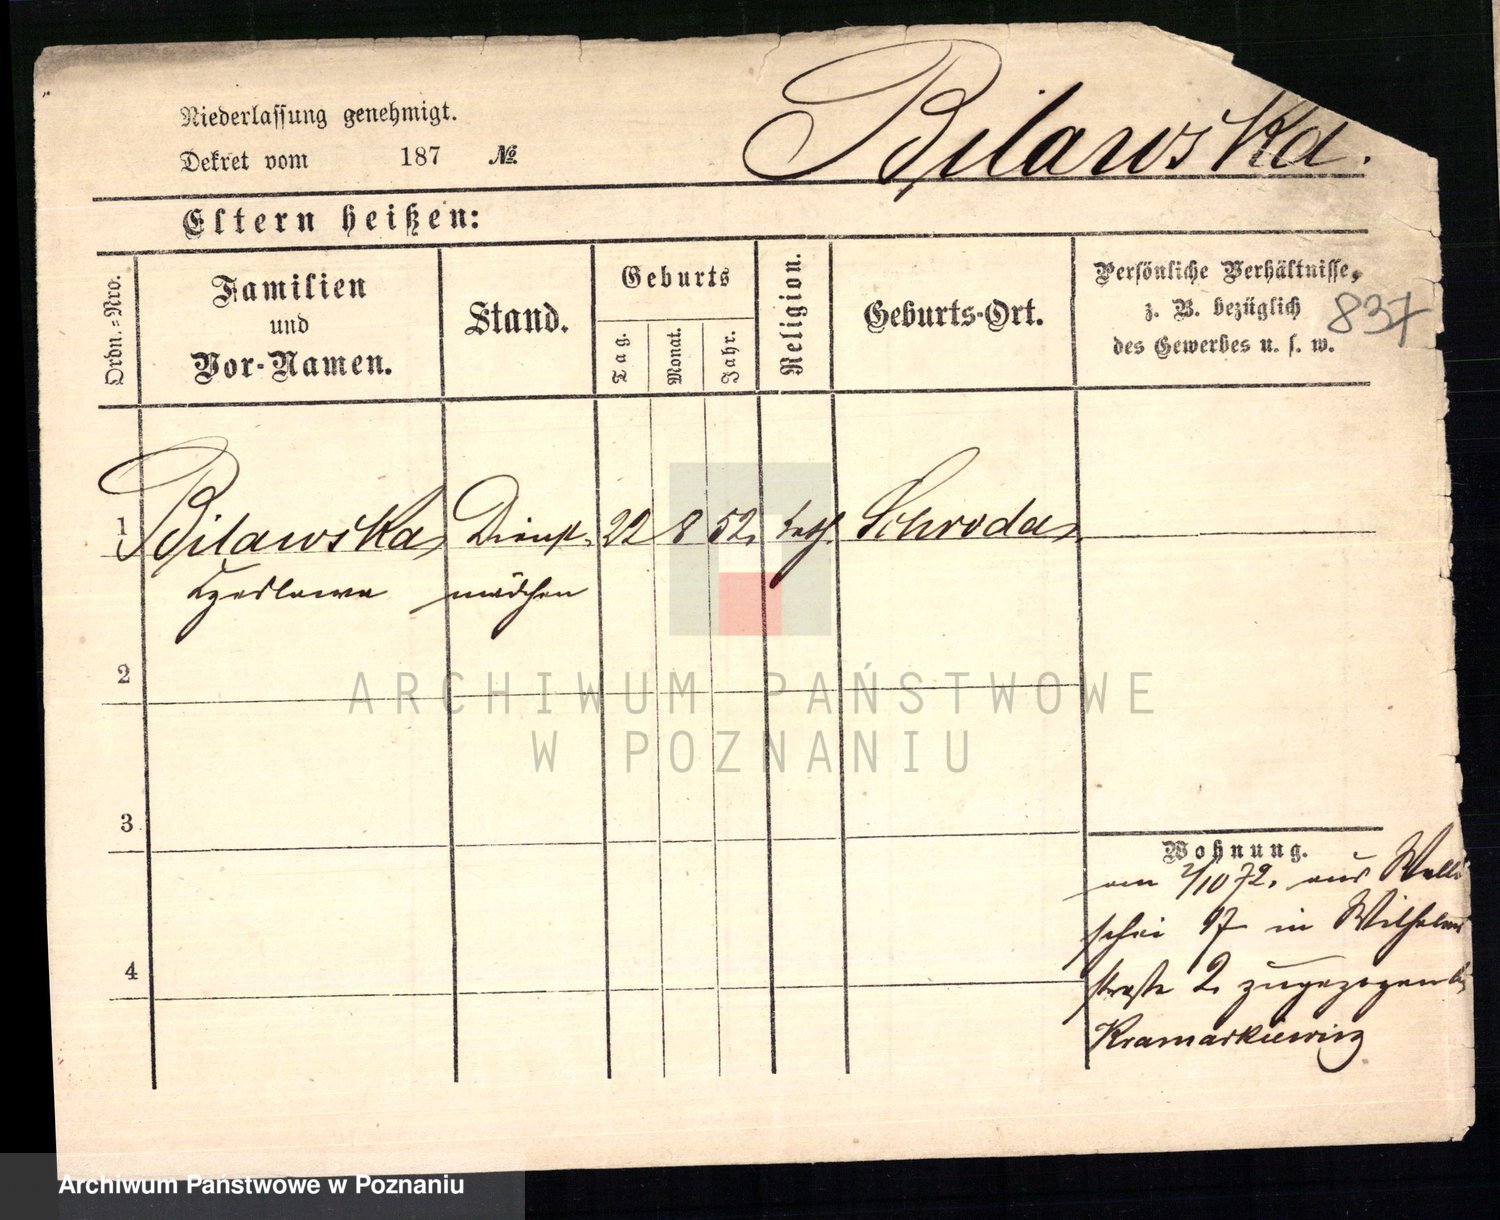 Bilawska.
Niederlassung genehmigt.
Dekret vom 187 №
Eltern heißen:
Ordn.-Nro.
Familien
und
Vor-Namen.
Stand.
Geburts
Tag.
Monat.
Jahr.
Religion.
Geburts-Ort.
Persönliche Verhältnisse,
z. B. bezüglich
des Gewerbes u. s. w.
837
1 Bilawska Dienst- 22 8 52. kath. Schroda
Czeslawa mädchen
2
3
4
Wohnung.
am 2/10 72. aus Walli
schei 97 in Wilhelms
straße 2. zugezogen
Kramarkiewicz
ARCHIWUM PAŃSTWOWE
W POZNANIU
Archiwum Państwowe w Poznaniu